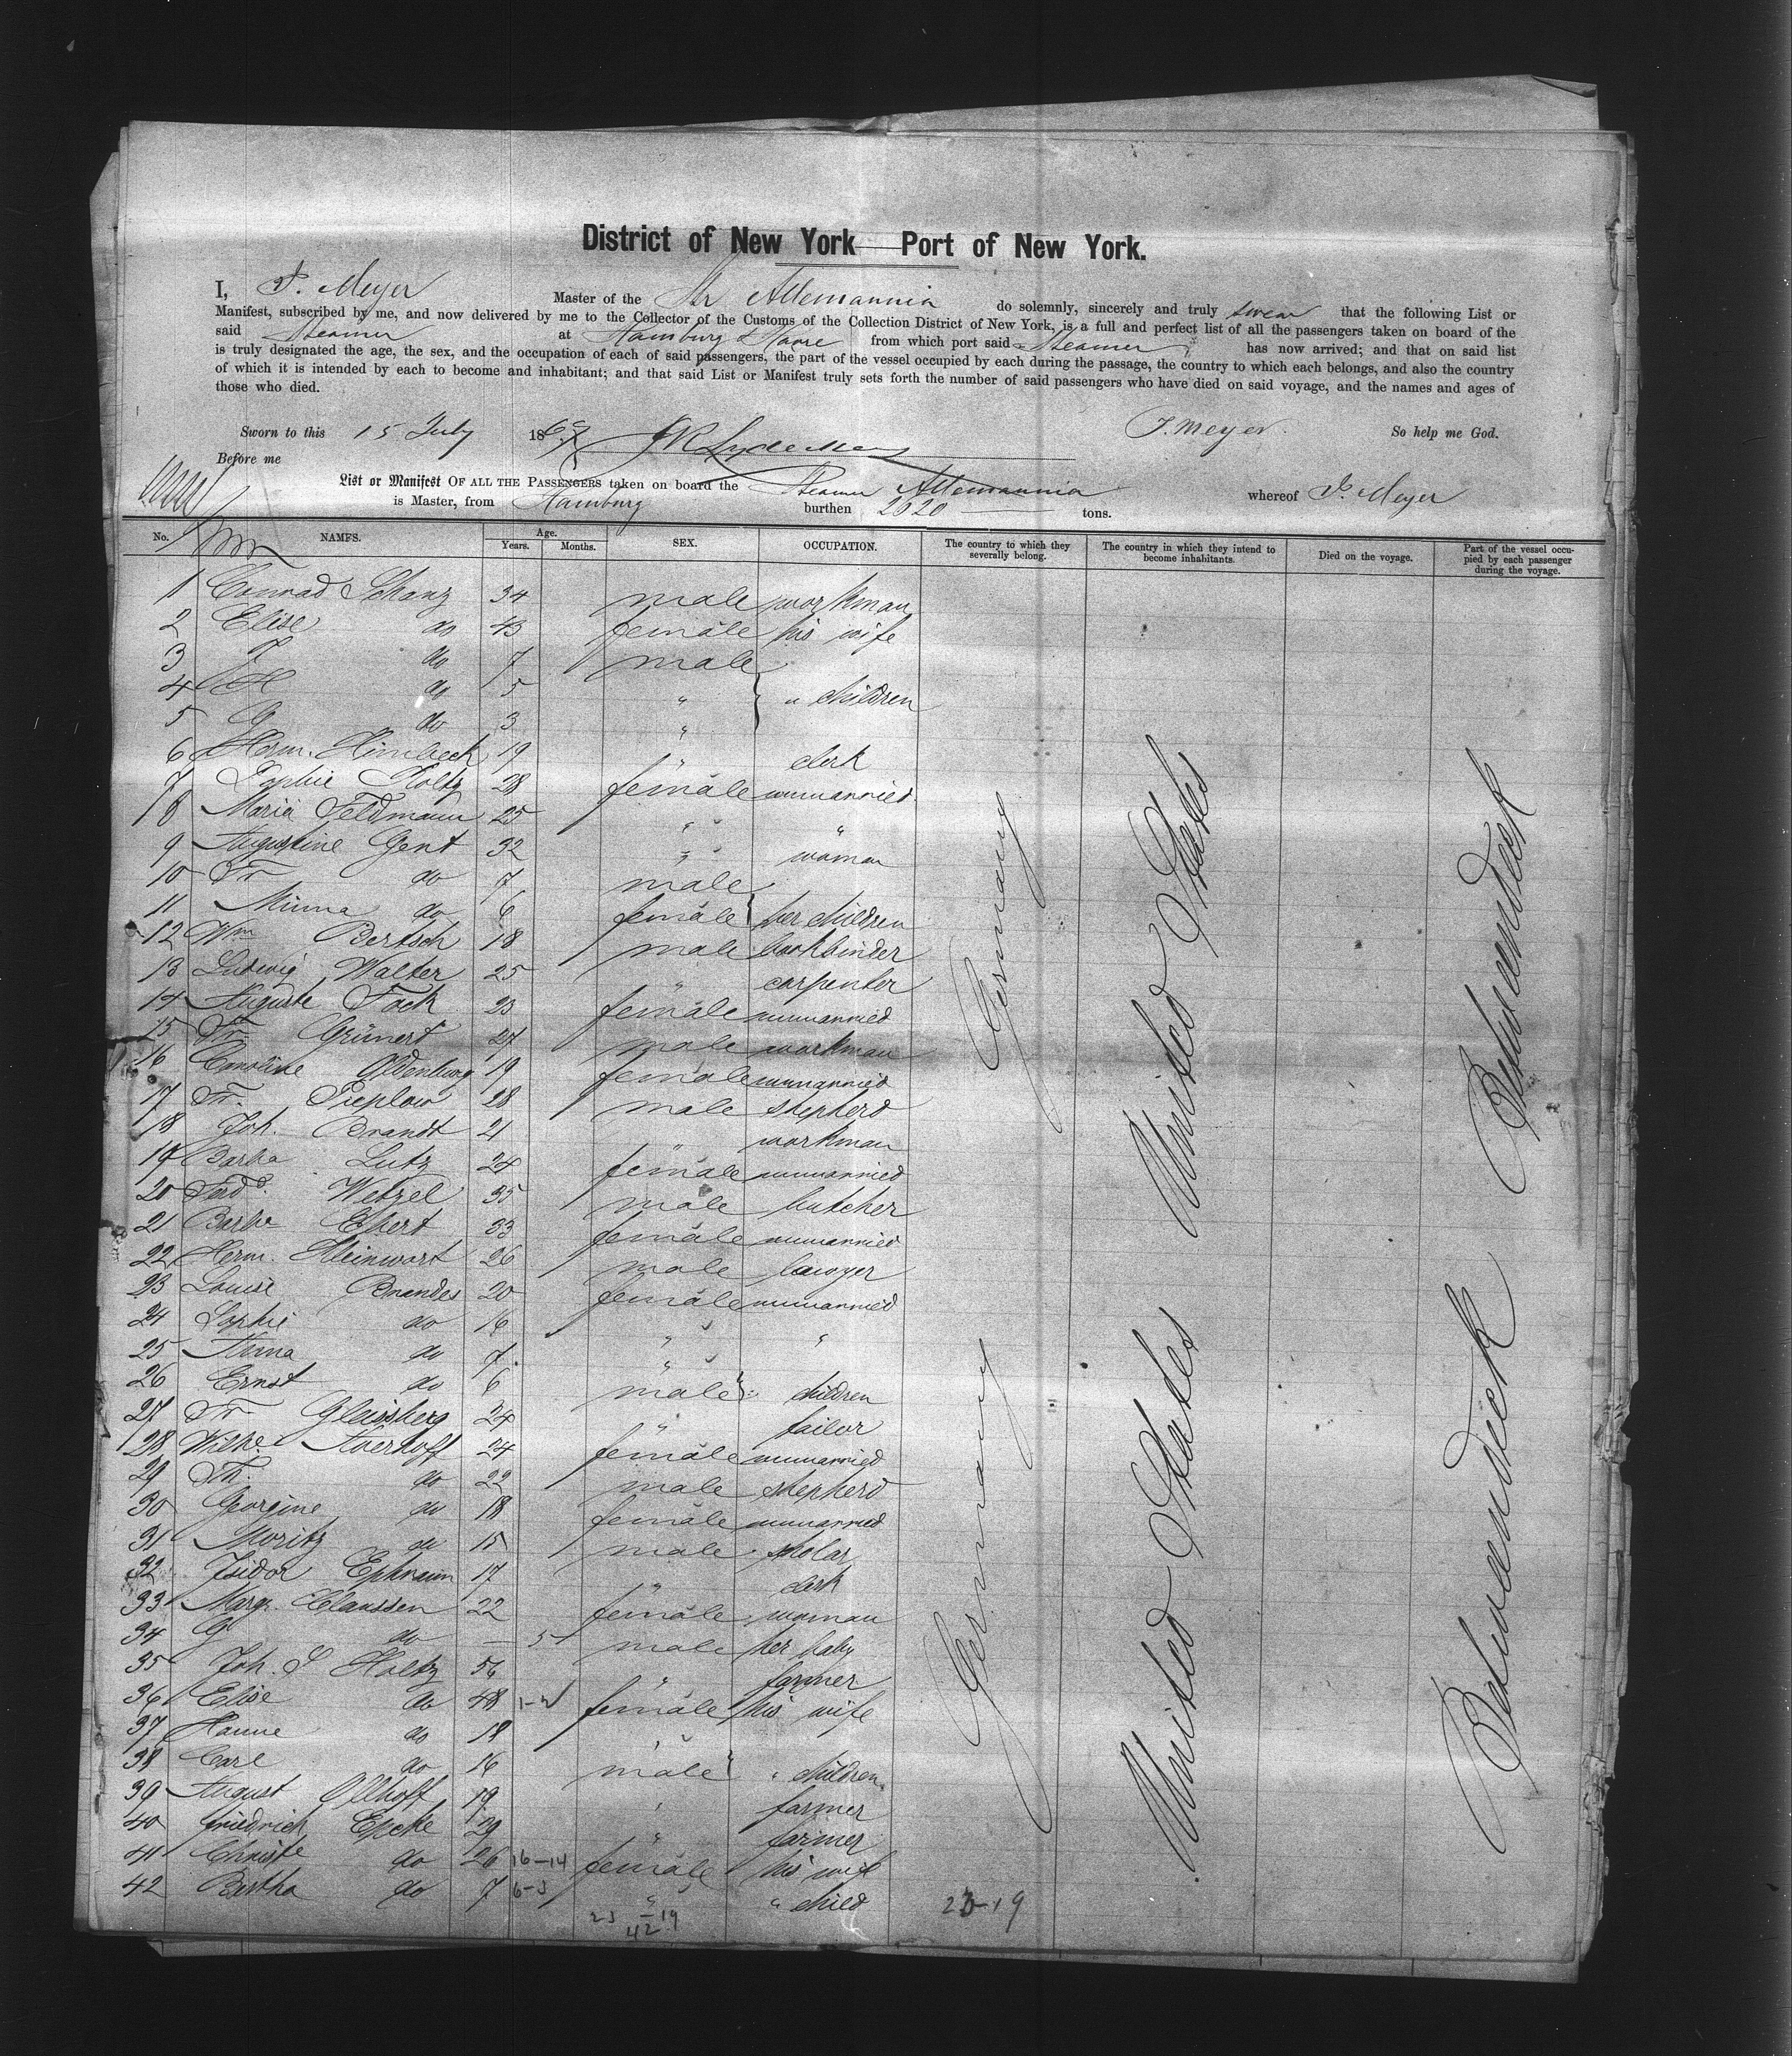 District of New York — Port of New York.
I, J. Meyer Master of the Str Allemannia do solemnly, sincerely and truly swear that the following List or
Manifest, subscribed by me, and now delivered by me to the Collector of the Customs of the Collection District of New York, is a full and perfect list of all the passengers taken on board of the
said Steamer at Hamburg & Havre from which port said Steamer has now arrived; and that on said list
is truly designated the age, the sex, and the occupation of each of said passengers, the part of the vessel occupied by each during the passage, the country to which each belongs, and also the country
of which it is intended by each to become and inhabitant; and that said List or Manifest truly sets forth the number of said passengers who have died on said voyage, and the names and ages of
those who died.
Sworn to this 15 July 1869 J. Meyer. So help me God.
Before me
List or Manifest OF ALL THE PASSENGERS taken on board the Steamer Allemannia whereof J. Meyer
is Master, from Hamburg burthen 2620 tons.
No. NAMES. Age. Years. Months. SEX. OCCUPATION. The country to which they severally belong. The country in which they intend to become inhabitants. Died on the voyage. Part of the vessel occupied by each passenger during the voyage.
1 Conrad Schanz 34 male workman
2 Elise do 43 female his wife
3 J do 7 male
4 H do 5 " " children
5 G do 3 "
6 Herm. Himbeck 19 " clerk
7 Sophie Holtz 28 female unmarried
8 Maria Feldmann 25 " "
9 Augustine Gent 32 " woman
10 Fr do 7 male
11 Minna do 6 female her children
12 Wm Bertsch 18 male bookbinder
13 Ludwig Walter 25 " carpenter
14 Auguste Fock 23 female unmarried
15 Fr. Grünert 27 male workman
16 Caroline Oldenburg 19 female unmarried
17 Fr. Pieplow 28 male shepherd
18 Joh. Brandt 21 " workman
19 Barba Lutz 24 female unmarried
20 Ferd. Wetzel 35 male butcher
21 Barba Ebert 33 female unmarried
22 Herm. Meinwort 26 male lawyer
23 Louise Brandes 20 female unmarried
24 Sophie do 16 " "
25 Anna do 7 "
26 Ernst do 6 male children
27 Fr. Gleissberg 24 " tailor
28 Wilhe. Averhoff 24 female unmarried
29 Th. do 22 male shepherd
30 Georgine do 18 female unmarried
31 Moritz do 15 male scholar
32 Isidor Ephraim 17 " clerk
33 Marg. Claussen 22 female woman
34 G do — 5 male her baby
35 Joh. J Holtz 56 " farmer
36 Elise do 48 female his wife
37 Hanne do 18 "
38 Carl do 16 male " children
39 August Ollhoff 19 " farmer
40 Friedrich Epcke 29 " farmer
41 Christe do 26 16-14 female his wife
42 Bertha do 7 " " child
Germany
Germany
United States
United States
Betweendeck
Betweendeck
23-19
42
23-19